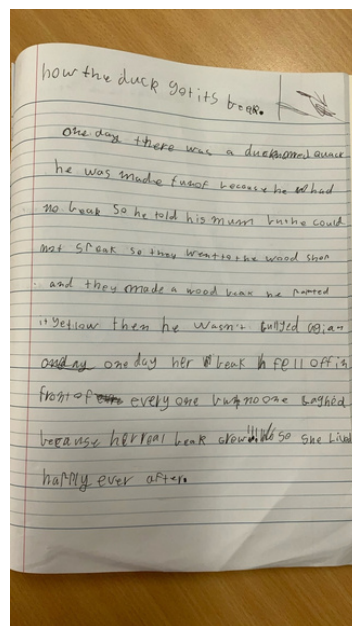 how the duck got its beak.
one day there was a duck named quack
he was made fun of because he had
no beak so he told his mum but he could
not speak so they went to the wood shop
and they made a wood beak he painted
it yellow then he wasn't bullyed agian
one day her beak fell off in
front of every one but no one laghed
because her real beak grew!!! so she lived
happly ever after.